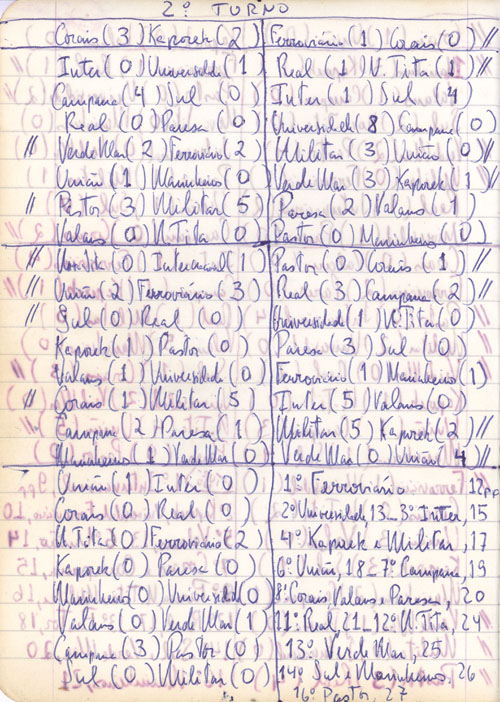 2º TURNO
Corais (3) Kaporek (2)
Inter (0) Universidade (1)
Campana (4) Sul (0)
Real (0) Paresa (0)
// Verde Mar (2) Ferroviário (2)
União (1) Marinheiros (0)
// Pastor (3) Militar (5)
Valans (0) N. Tita (0)
Ferroviário (1) Corais (0) //
Real (1) V. Tita (1) //
Inter (1) Sul (4)
Universidade (8) Campana (0)
Militar (3) União (0) //
Verde Mar (3) Kaporek (1) //
Paresa (2) Valans (1)
Pastor (0) Marinheiro (0)
// (0) Internacional (1)
// União (2) Ferroviário (3)
// Sul (0) Real (0)
Kaporek (1) Pastor (0)
Valans (1) Universidade (0)
// Corais (1) Militar (5)
// Campana (2) Paresa (1)
Marinheiros (1) Verde Mar (0)
Pastor (0) Corais (1) //
Real (3) Campana (2) //
Universidade (1) N. Tita (0)
Paresa (3) Sul (0)
Ferroviário (1) Marinheiro (1)
Inter (5) Valans (0)
Militar (5) Kaporek (2) //
Verde Mar (0) União (4) //
União (1) Inter (0)
Corais (0) Real (0)
N. Tita (0) Ferroviário (2)
Kaporek (0) Paresa (0)
Marinheiro (0) Universidade (0)
Valans (0) Verde Mar (1)
Campana (3) Pastor (0)
Sul (0) Militar (0)
1º Ferroviário 12
2º Universidade 13 - 3º Inter, 15
4º Kaporek e Militar, 17
6º União, 18 - 7º Campana, 19
8º Corais Valans e Paresa, 20
11º Real, 21 - 12º N. Tita, 24
13º Verde Mar, 25
14º Sul e Marinheiros, 26
16º Pastor, 27